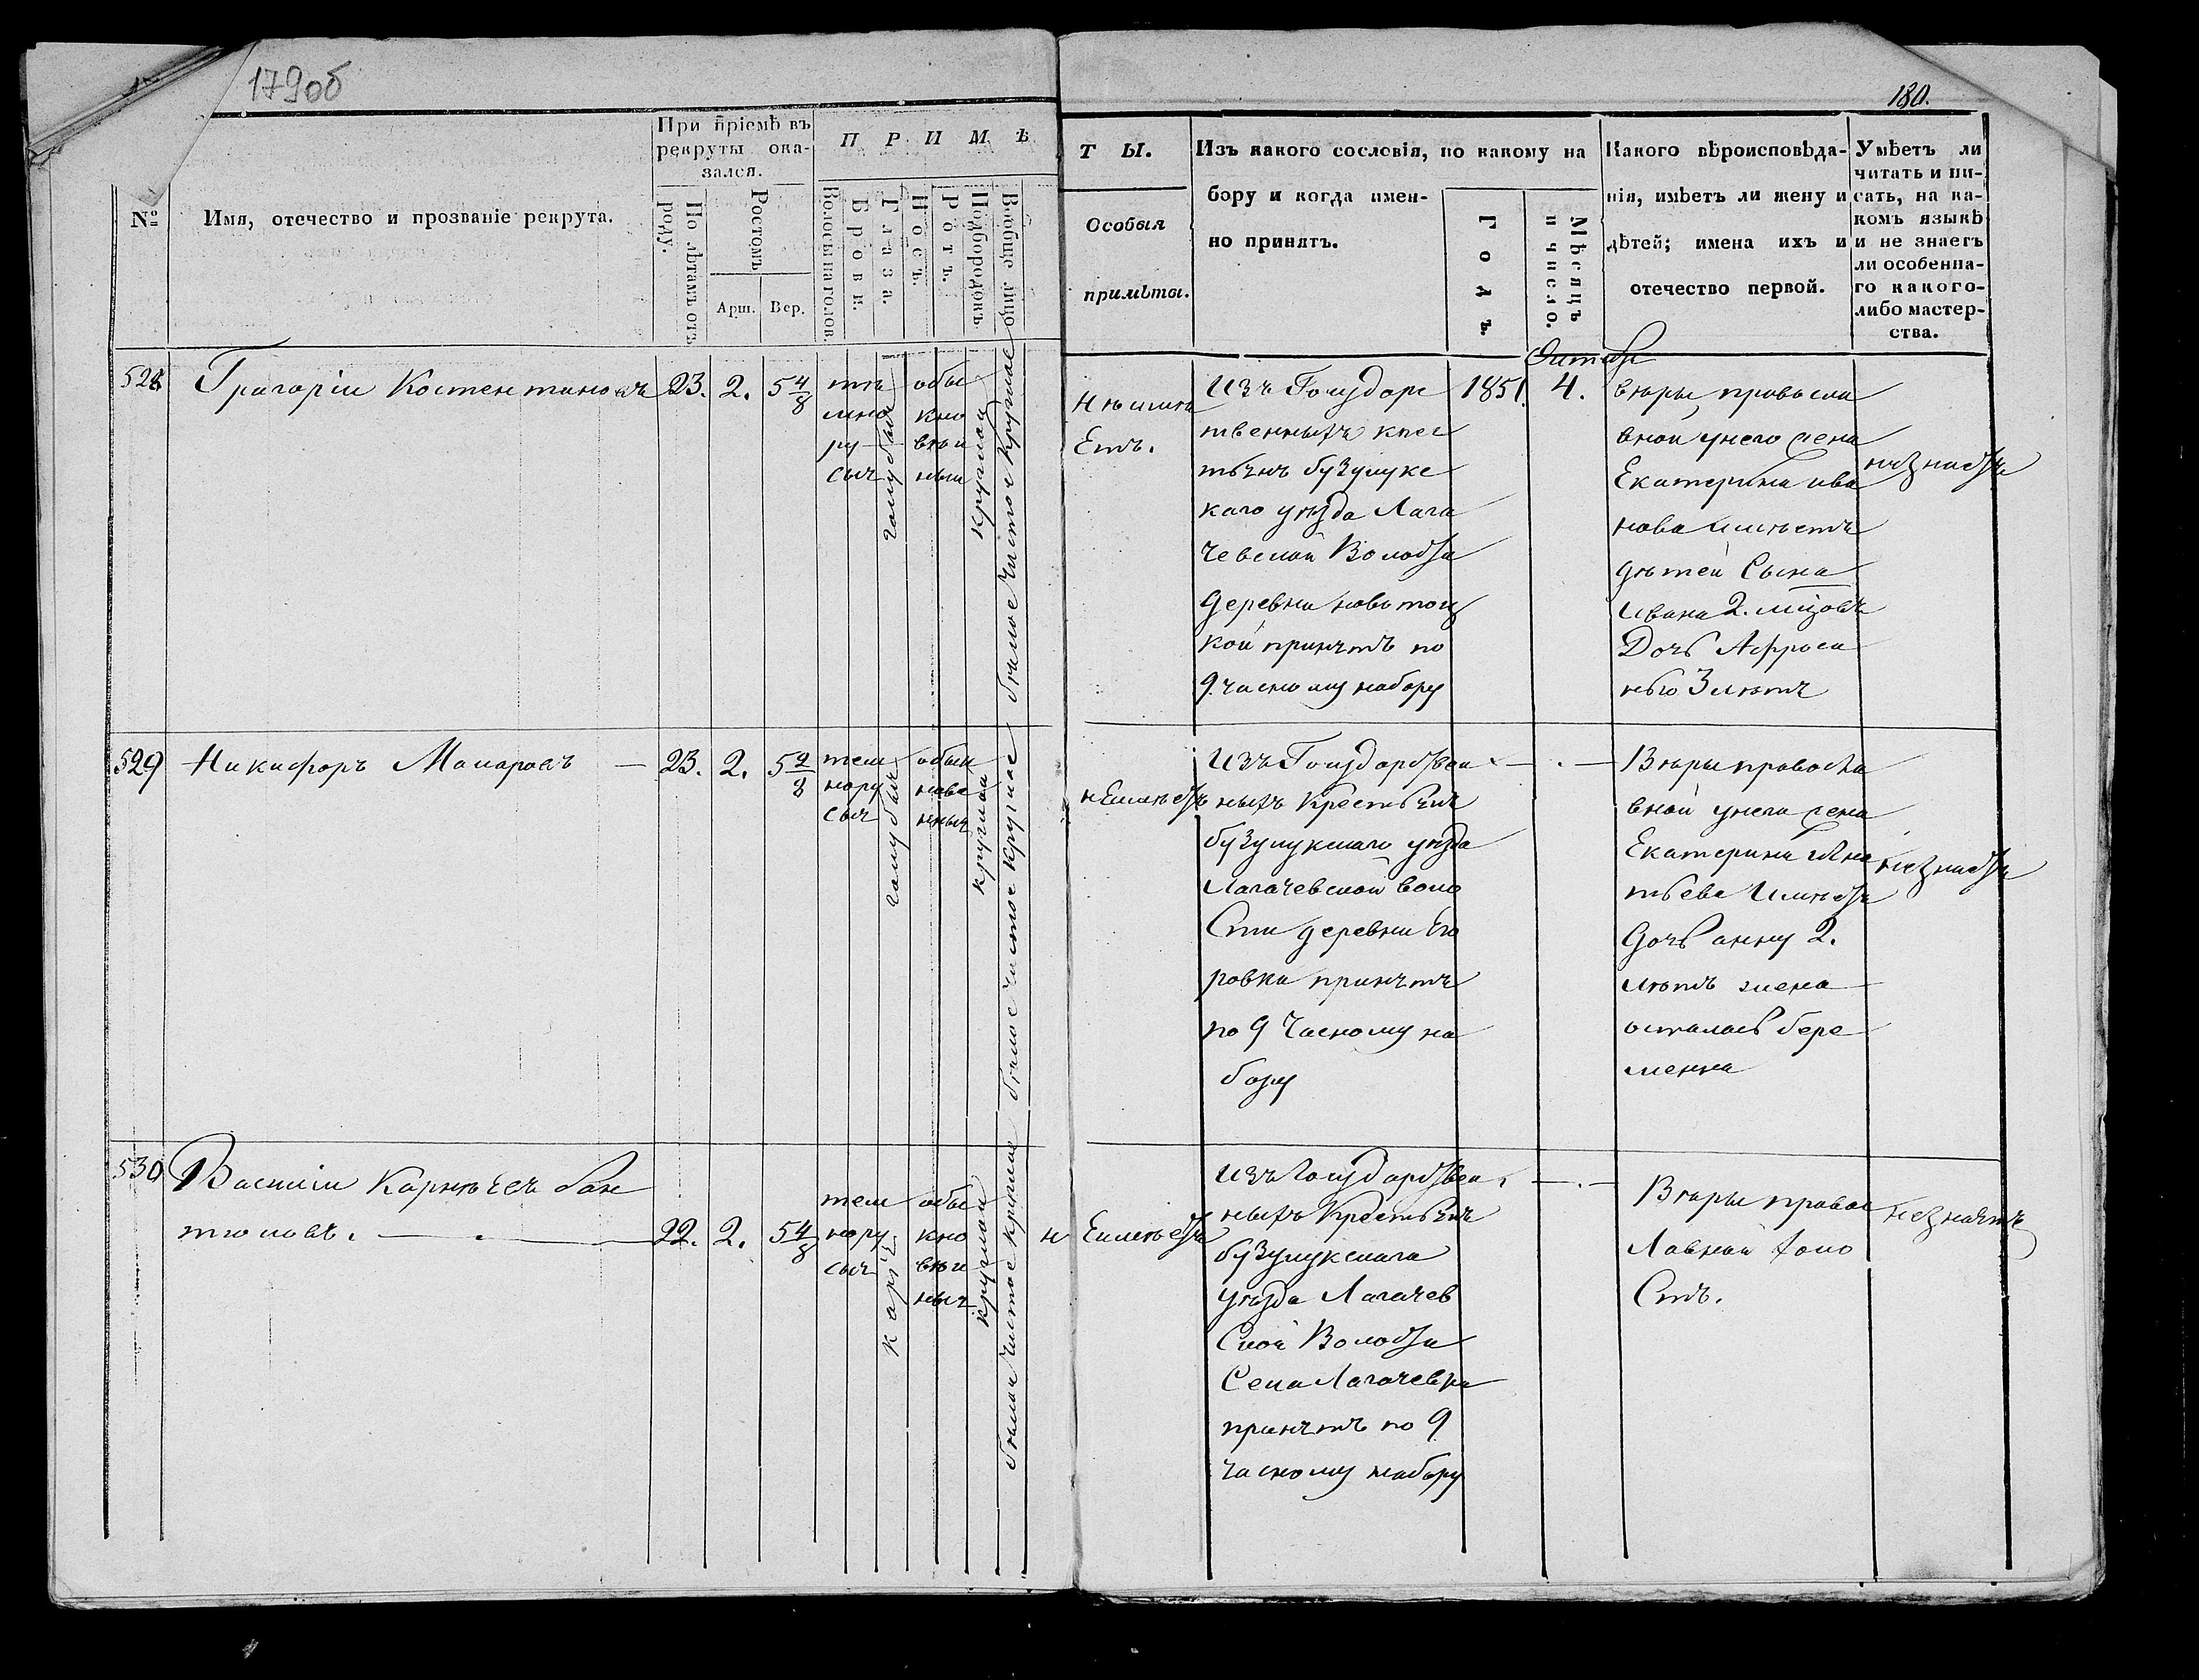 179об
180.
№
Имя, отечество и прозваніе рекрута.
При пріемѣ въ
рекруты ока-
зался.
По лѣтамъ отъ
роду.
Ростомъ
Арш.
Вер.
П Р И М Ѣ
Волосы на голов.
Брови.
Глаза.
Носъ.
Ротъ.
Подбородокъ.
Вообще лицо
Т Ы.
Особыя
примѣты.
Изъ какого сословія, по какому на
бору и когда имен-
но принятъ.
Годъ.
Мѣсяцъ
и число.
Какого вѣроисповѣда-
нія, имѣетъ ли жену и
дѣтей; имена ихъ и
отечество первой.
Умѣетъ ли
читать и пи-
сать, на ка-
комъ языкѣ
и не знаетъ
ли особенна-
го какого-
либо мастер-
ства.
528
Григоріи Костентиновъ
23.
2.
5 4/8
тѣ
мно
ру
сыя
голубыя
обы
кно
вѣн
ныи
круглаи
бѣлое чистое круглае
Н ѣимѣ
Етъ.
Изъ Государс
твенныхъ крес
тьянъ бузулукс
каго уѣзда Лага
чевской Волости
деревни новотоц
кой принятъ по
9. часному набору
1851.
Октябр
4.
вѣры, провосла
вной унего жена
Екатерина ива
нова имѣетъ
дѣтей Сына
Ивана 2. мцовъ
Дочь Афроси
нью 3 лѣтъ
незнаетъ
529
Никифоръ Макаровъ
23.
2.
5 2/8
тем
нору
сыя
голубыя
обык
нове
нныя
круглаи
бѣлое чистое круглае
нЕимѣетъ
Изъ Государствен
ныхъ Крестьянъ
бузулукскаго уѣзда
Лагачевской воло
Сти деревни Его
ровки принятъ
по 9 Часному на
бору
Вѣры православ
вной унего жена
Екатерина Игна
тьева Имѣетъ
Дочь анну 2.
лѣтъ жена
осталась бере
менна
незнаетъ
530
Василіи Карнѣевъ бан
тюковъ.
22.
2.
5 4/8
тем
нору
сыя
каріе
обы
кно
вѣн
ныя
круглаи
бѣлаи чистае круглае
н Еимѣетъ
Изъ Государствен
ныхъ Крестьянъ
бузулукскаго
уѣзда Лагачев
Ской Волости
Села Лагачевки
принятъ по 9
часному набору
Вѣры правос
Лавной холо
Стъ.
незнаятъ